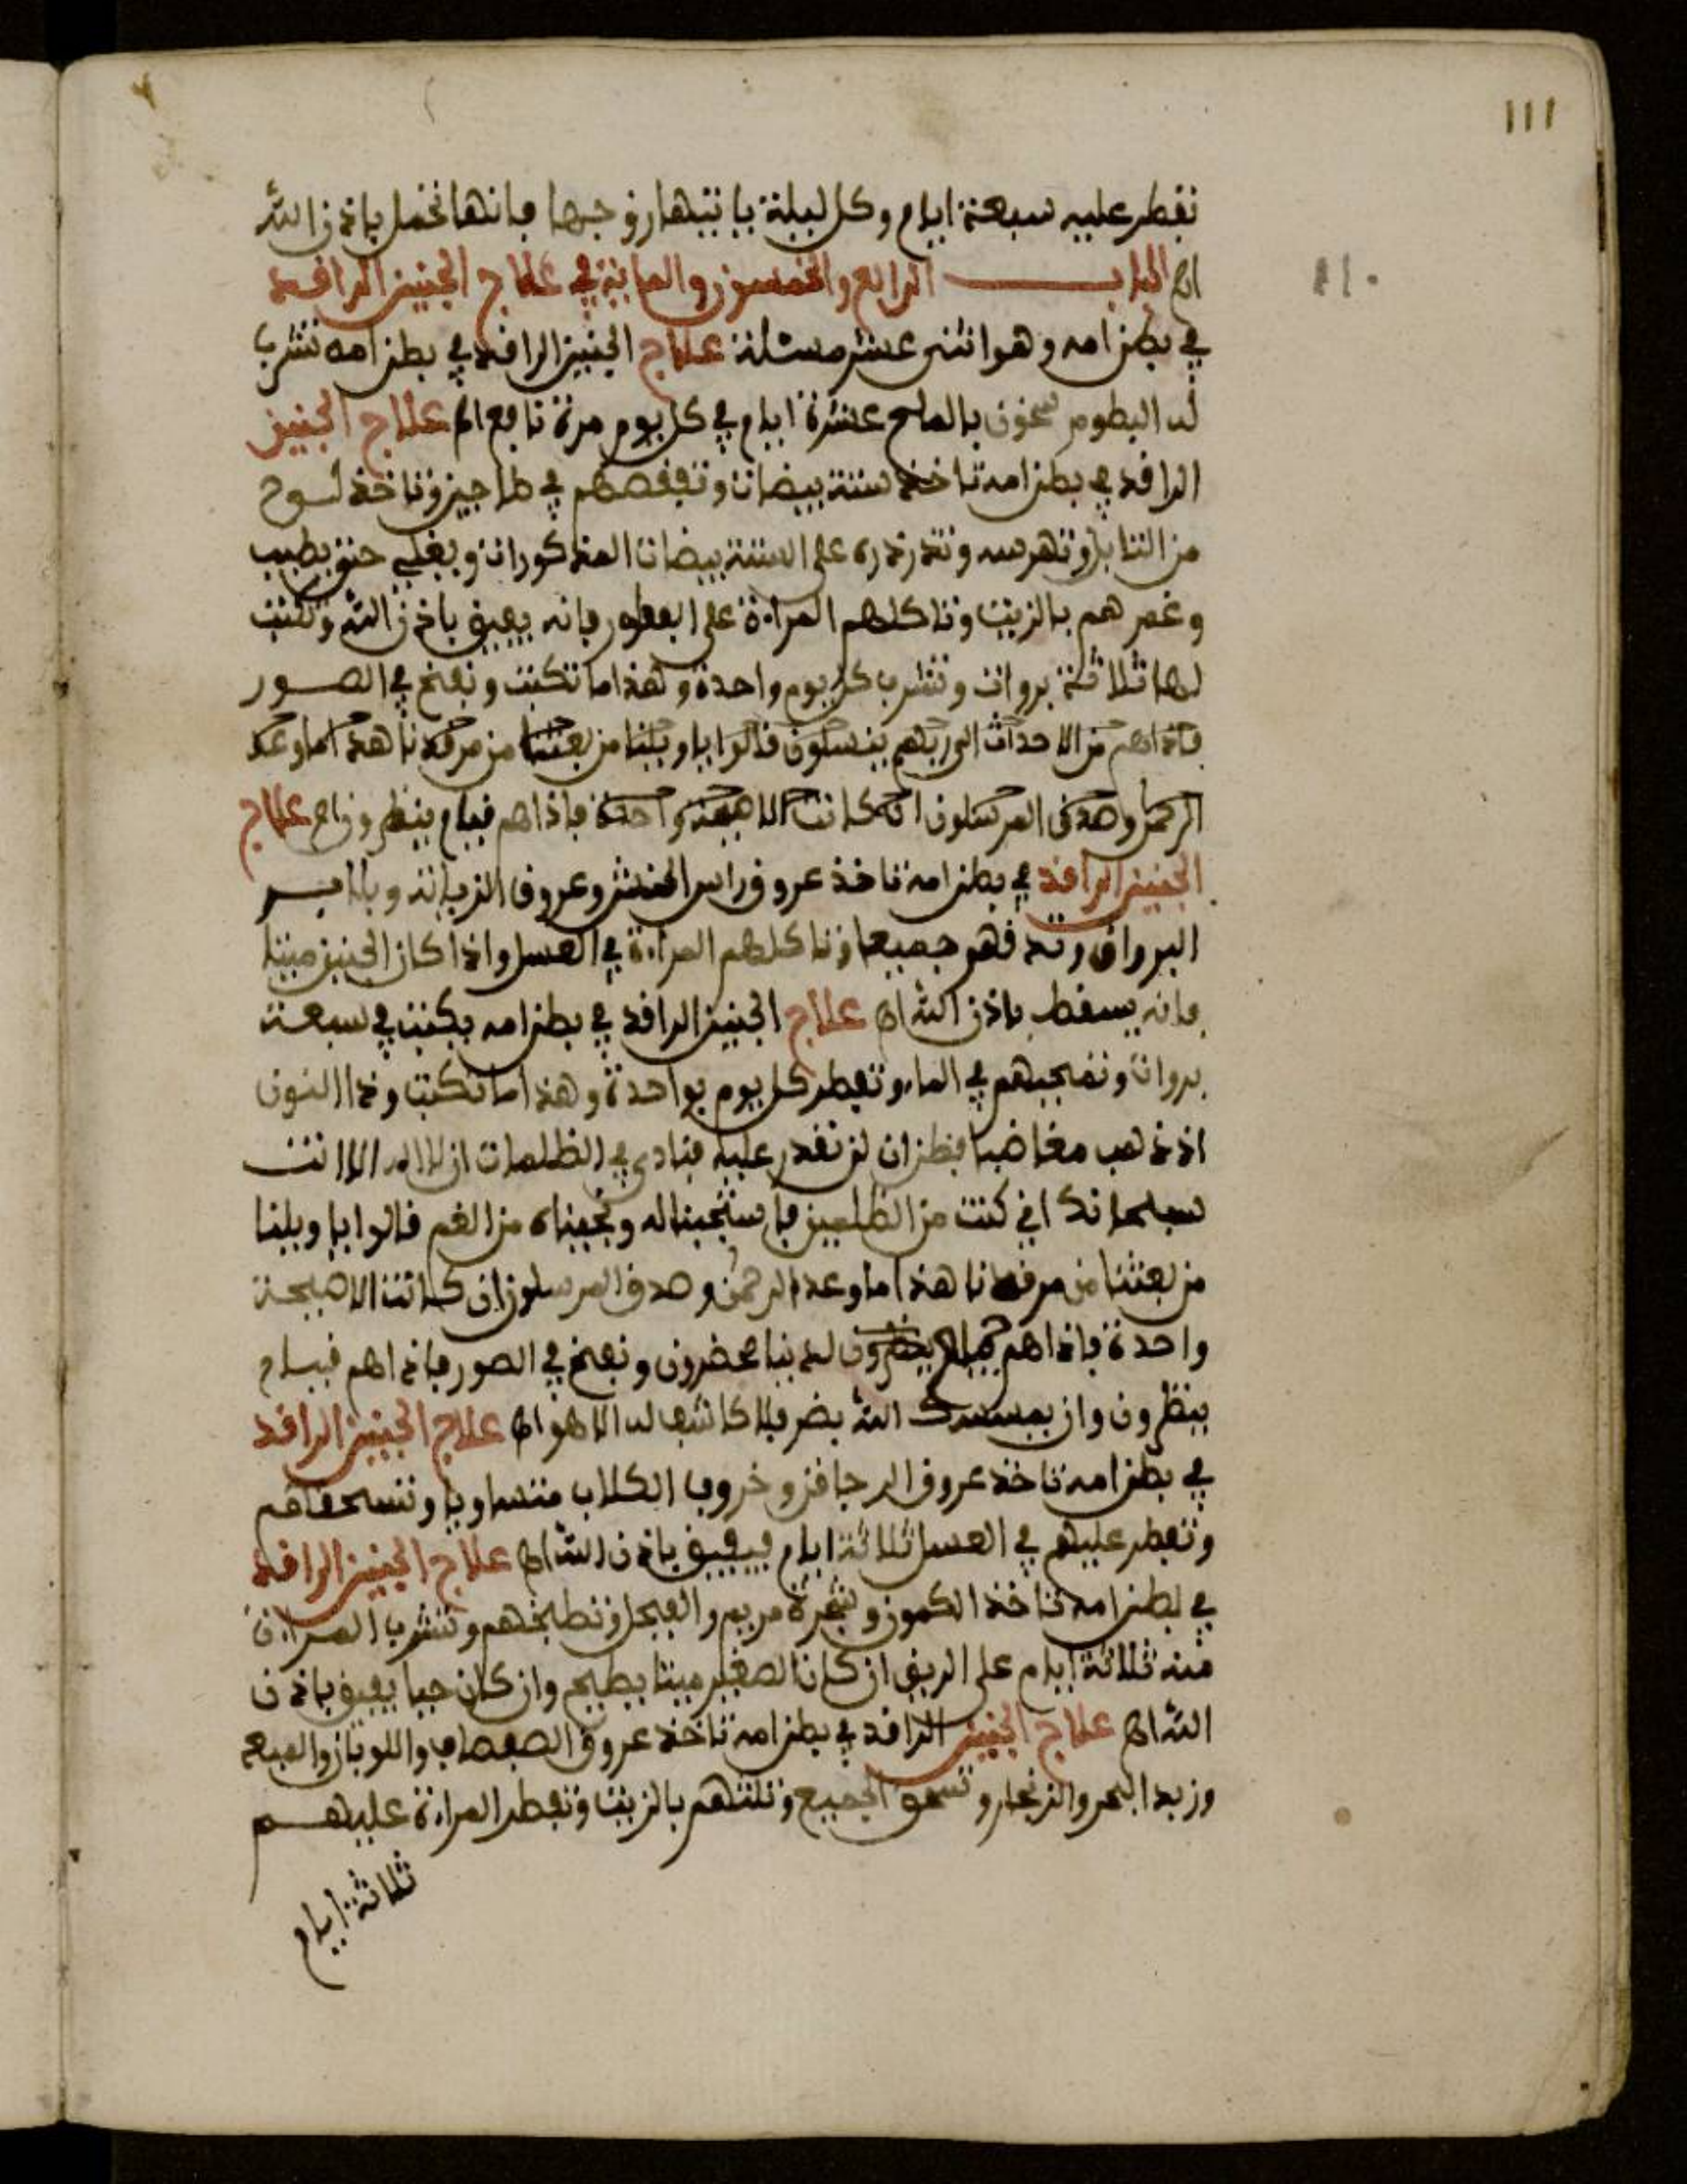 ١١١
١١٠
تفطر عليه سبعة ايام وكل ليلة يابتها زوجها فانها تحمل باذن الله
اﻫ الباب الرابع والخمسون والماية في علاج الجنين الراقد
في بطن امه وهو اثنى عشر مسئلة علاج الجنين الراقد في بطن امه تشرب
له البطوم سخون بالملح عشرة ايام في كل يوم مرة نافع اﻫ علاج الجنين
الراقد في بطن امه تاخذ ستة بيضات وتفقصهم في طاجين وتاخذ
من التابل وتهرسه وتدردره على الستة بيضات المذكورات ويغلى حتى يطيب
وغمرهم بالزيت وتاكلهم المراة على الفطور فانه يفيق باذن الله وتكتب
لها ثلاثة بروات وتشرب كل يوم واحدة وهذا ما تكتب ونفخ في الصور
فاذا هم من الاحداث الى ربهم ينسلون قالوا ياويلنا من بعثنا من مرقدنا هذا ما وعد
الرحمن وصدق المرسلون ان كانت الا صيحة واحدة فاذا هم قيام ينظرون اﻫ علاج
الجنين الراقد في بطن امه تاخذ عروق راس الحنش وعروق الزياتة
البرواق وتدقهم جميعا وتاكلهم المراة في العسل واذا كان الجنين ميتا
فانه يسقط باذن الله اﻫ علاج الجنين الراقد في بطن امه يكتب في سبعة
بروات وتمحيهم في الماء وتفطر كل يوم بواحدة وهذا ما تكتب وذا النون
اذ ذهب مغاضبا فظن ان لن نقدر عليه فنادى في الظلمات ان لا اله الا انت
سبحانك اني كنت من الظلمين فاستجبنا له ونجيناه من الغم قالوا ياويلنا
من بعثنا من مرقدنا هذا ما وعد الرحمن وصدق المرسلون ان كانت الا صيحة
واحدة فاذا هم لدينا محضرون ونفخ في الصور فاذا هم قيام
ينظرون وان يمسسك الله بضر فلا كاشف له الا هو اﻫ علاج الجنين الراقد
في بطن امه تاخذ عروق الدرجافن وخروب الكلاب متساويا وتسحقهم
وتفطر عليهم في العسل ثلاثة ايام فيفيق باذن الله اﻫ علاج الجنين الراقد
في بطن امه تاخذ الكمون وشجرة مريم والفجل وتطبخهم وتشرب المراة
منه ثلاثة ايام على الريق ان كان الصغير ميتا يطيح وان كان حيا يفيق باذن
الله اﻫ علاج الجنين الراقد في بطن امه تاخذ عروق الصفصاف واللوبان والميعة
وزبد البحر والزنجار وتسحق الجميع وتلتهم بالزيت وتفطر المراة عليهم
ثلاثة ايام